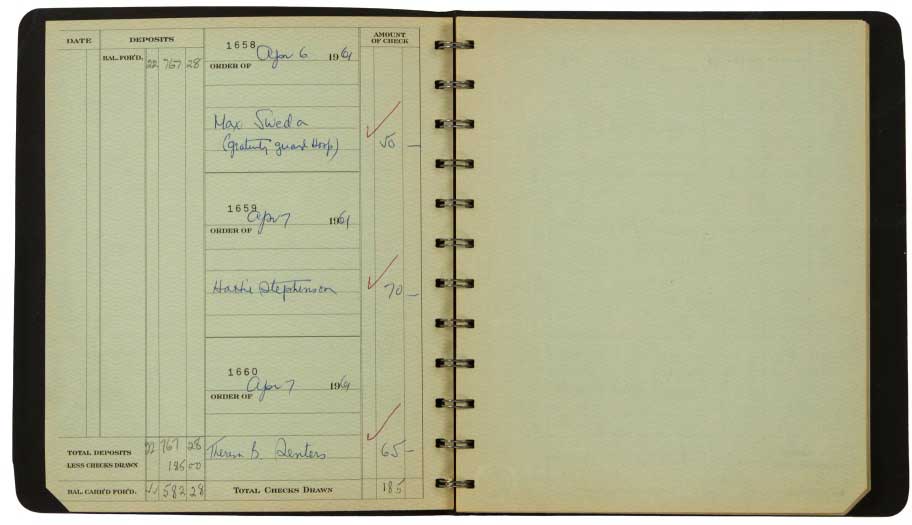 DATE DEPOSITS AMOUNT OF CHECK
BAL. FOR'D. 22 767 28
1658 Apr 6 1961
ORDER OF
Max Sweda
(gratuity guard Hosp) 50 —
1659 Apr 7 1961
ORDER OF
Hattie Stephenson 70 —
1660 Apr 7 1961
ORDER OF
Theresa B. 65 —
TOTAL DEPOSITS 22 767 28
LESS CHECKS DRAWN 185 00
BAL. CARR'D FOR'D. 22 582 28 TOTAL CHECKS DRAWN 185